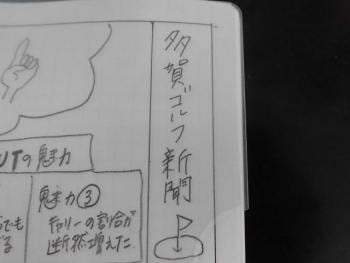 多賀ゴルフ新聞
UTの魅力
魅力③
キャリーの割合が
断然増えた。
でも
る